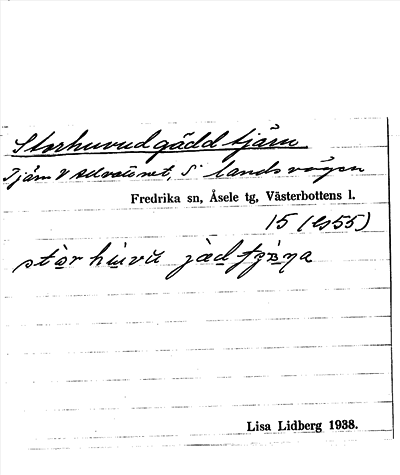 Storhuvudgäddtjärn
Tjärn V Selvattnet, S landsvägen
Fredrika sn, Åsele tg, Västerbottens l.
15 (Es55)
Lisa Lidberg 1938.